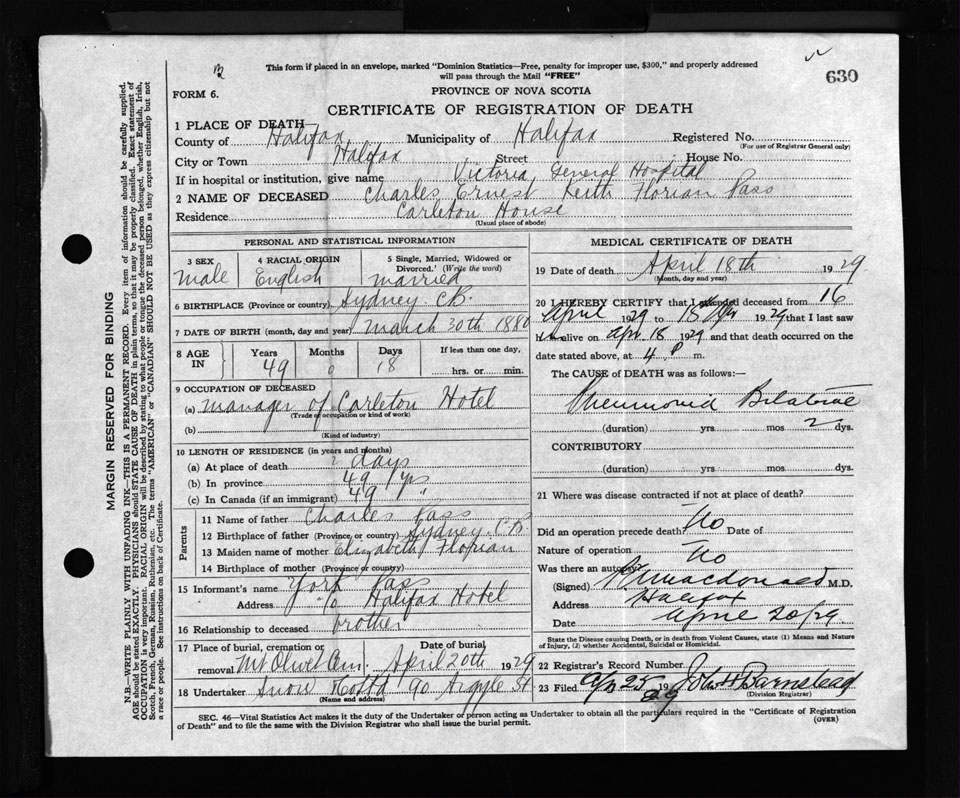 This form if placed in an envelope, marked "Dominion Statistics—Free, penalty for improper use, $300," and properly addressed
will pass through the Mail "FREE"
630
FORM 6.
PROVINCE OF NOVA SCOTIA
CERTIFICATE OF REGISTRATION OF DEATH
1 PLACE OF DEATH
County of Halifax Municipality of Halifax Registered No.
(For use of Registrar General only)
City or Town Halifax Street House No.
If in hospital or institution, give name Victoria General Hospital
2 NAME OF DECEASED Charles Ernest Keith Florian Pass
Residence Carleton House
(Usual place of abode)
PERSONAL AND STATISTICAL INFORMATION
3 SEX male
4 RACIAL ORIGIN English
5 Single, Married, Widowed or Divorced. (Write the word) married
6 BIRTHPLACE (Province or country) Sydney C.B.
7 DATE OF BIRTH (month, day and year) March 30th 1880
8 AGE IN Years 49 Months 0 Days 18 If less than one day, hrs. or min.
9 OCCUPATION OF DECEASED
(a) manager of Carleton Hotel
(Trade or occupation or kind of work)
(b)
(Kind of industry)
10 LENGTH OF RESIDENCE (in years and months)
(a) At place of death 2 days
(b) In province 49 yrs
(c) In Canada (if an immigrant) 49 "
Parents
11 Name of father Charles Pass
12 Birthplace of father (Province or country) Sydney C.B.
13 Maiden name of mother Elizabeth Florian
14 Birthplace of mother (Province or country)
15 Informant's name York Pass
Address c/o Halifax Hotel
16 Relationship to deceased brother
17 Place of burial, cremation or removal Mt Olivet Cem. Date of burial April 20th 1929
18 Undertaker Snow Co Ltd 90 Argyle St
(Name and address)
MEDICAL CERTIFICATE OF DEATH
19 Date of death April 18th 1929
(Month, day and year)
20 I HEREBY CERTIFY that I attended deceased from 16
April 1929 to 18 Apr 1929 that I last saw
him alive on apr 18 1929 and that death occurred on the
date stated above, at 4 P m.
The CAUSE of DEATH was as follows:—
Pneumonia Bilateral
(duration) yrs mos 2 dys.
CONTRIBUTORY
(duration) yrs mos dys.
21 Where was disease contracted if not at place of death?
Did an operation precede death? No Date of
Nature of operation
Was there an autopsy? No
(Signed) Macdonald M.D.
Address Halifax
Date April 20/29
State the Disease causing Death, or in death from Violent Causes, state (1) Means and Nature
of Injury, (2) whether Accidental, Suicidal or Homicidal.
22 Registrar's Record Number
23 Filed Apr 25 1929 John H Barnstead
(Division Registrar)
SEC. 46—Vital Statistics Act makes it the duty of the Undertaker or person acting as Undertaker to obtain all the particulars required in the "Certificate of Registration
of Death" and to file the same with the Division Registrar who shall issue the burial permit.
(OVER)
MARGIN RESERVED FOR BINDING
N.B.—WRITE PLAINLY WITH UNFADING INK—THIS IS A PERMANENT RECORD. Every item of information should be carefully supplied.
AGE should be stated EXACTLY. PHYSICIANS should STATE CAUSE OF DEATH in plain terms, so that it may be properly classified. Exact statement of
OCCUPATION is very important. RACIAL ORIGIN will be described by stating to what people or tongue the deceased person belonged, whether English, Irish,
Scotch, French, German, Russian, Ruthenian, etc. The terms "AMERICAN" or "CANADIAN" SHOULD NOT BE USED as they express citizenship but not
a race or people. See instructions on back of Certificate.